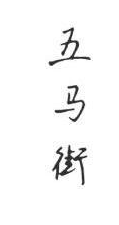 五马街